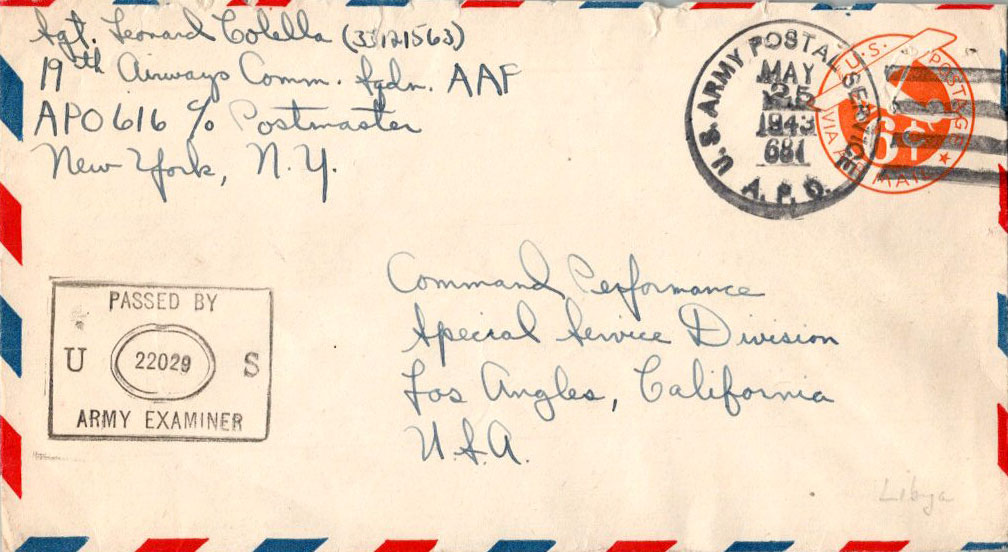 Sgt. Leonard Colella (33121563)
19th Airways Comm. Sqdn. AAF
APO 616 c/o Postmaster
New York, N.Y.
U.S. ARMY POSTAL SERVICE
MAY
25
1943
681
A.P.O.
U.S. POSTAGE
6¢
VIA AIR MAIL
PASSED BY
U 22029 S
ARMY EXAMINER
Command Performance
Special Service Division
Los Angles, California
U.S.A.
Libya